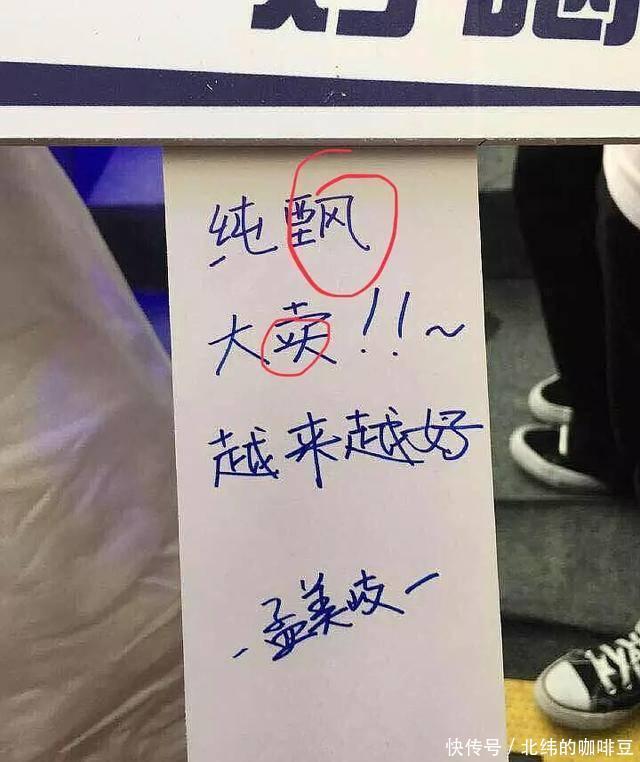 纯飘
大卖!!~
越来越好
孟美岐
快传号/北纬的咖啡豆